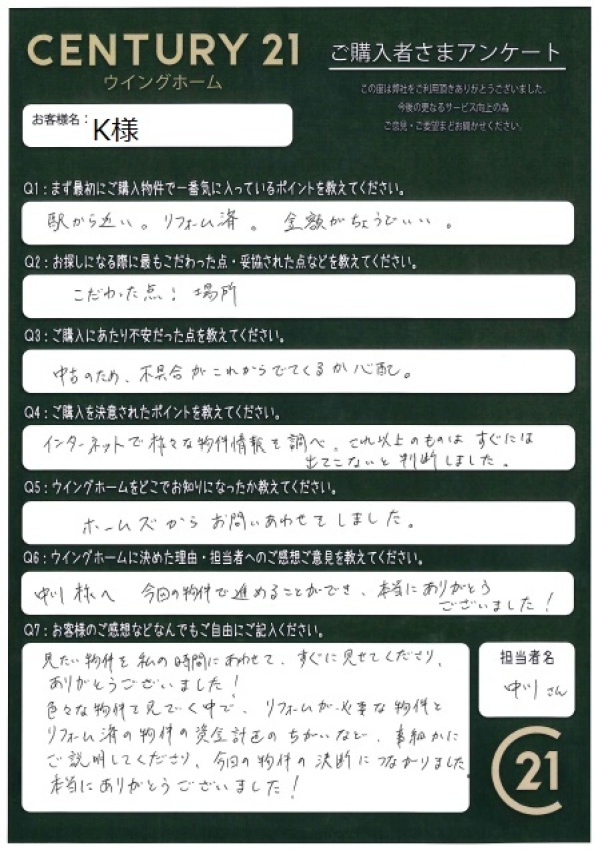 CENTURY 21
ウイングホーム
ご購入者さまアンケート
この度は弊社をご利用頂きありがとうございました。
今後の更なるサービス向上の為
ご意見・ご要望をお聞かせください。
お客様名：K様
Q1：まず最初にご購入物件で一番気に入っているポイントを教えてください。
駅から近い。リフォーム済。金額がちょうどいい。
Q2：お探しになる際に最もこだわった点・妥協された点などを教えてください。
こだわった点：場所
Q3：ご購入にあたり不安だった点を教えてください。
中古のため、不具合がこれからでてくるか心配。
Q4：ご購入を決意されたポイントを教えてください。
インターネットで様々な物件情報を調べ、これ以上のものはすぐには
出てこないと判断しました。
Q5：ウイングホームをどこでお知りになったか教えてください。
ホームズからお問いあわせしました。
Q6：ウイングホームに決めた理由・担当者へのご感想ご意見を教えてください。
中川様へ 今回の物件で進めることができ、本当にありがとう
ございました！
Q7：お客様のご感想などなんでもご自由にご記入ください。
見たい物件を私の時間にあわせて、すぐに見せてくださり、
ありがとうございました！
色々な物件を見ていく中で、リフォームが必要な物件と
リフォーム済の物件の資金計画のちがいなど、事細かに
ご説明してくださり、今回の物件の決断につながりました。
本当にありがとうございました！
担当者名
中川さん
C21